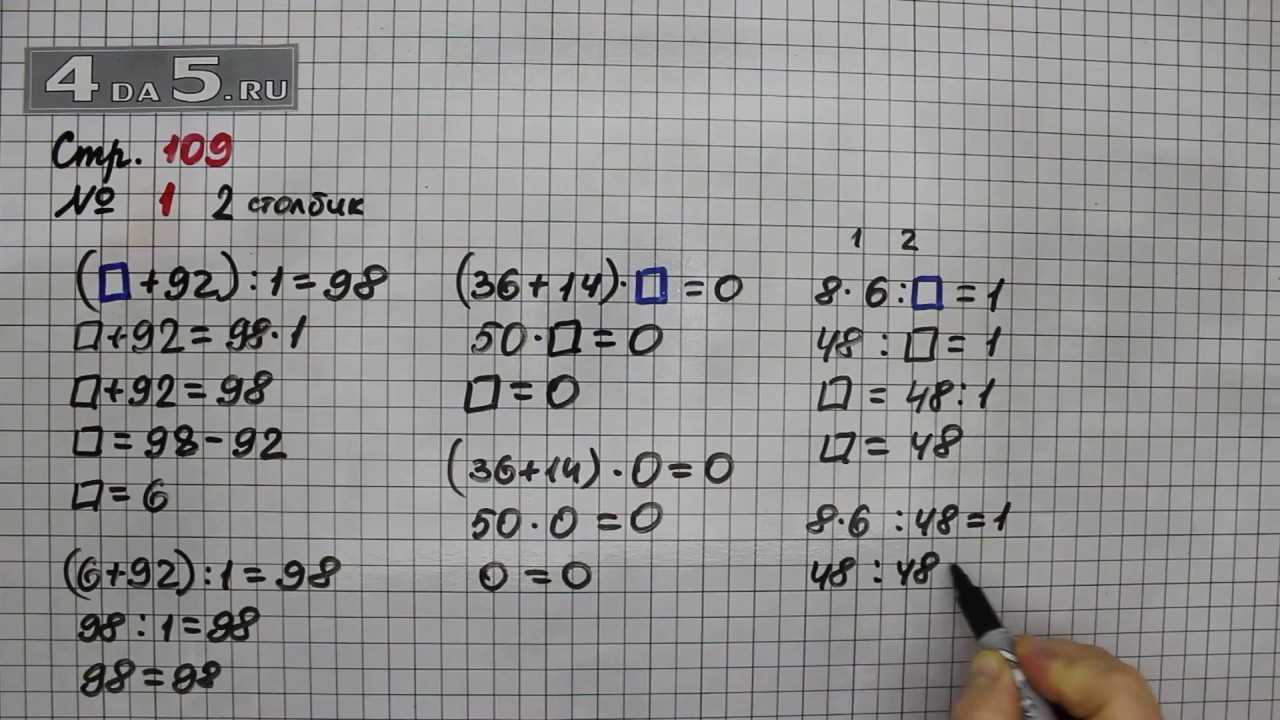 4 DA 5.RU
Стр. 109
№ 1 2 столбик
(□+92):1=98
□+92=98·1
□+92=98
□=98-92
□=6
(6+92):1=98
98:1=98
98=98
(36+14)·□=0
50·□=0
□=0
(36+14)·0=0
50·0=0
0=0
1 2
8·6:□=1
48:□=1
□=48:1
□=48
8·6:48=1
48:48